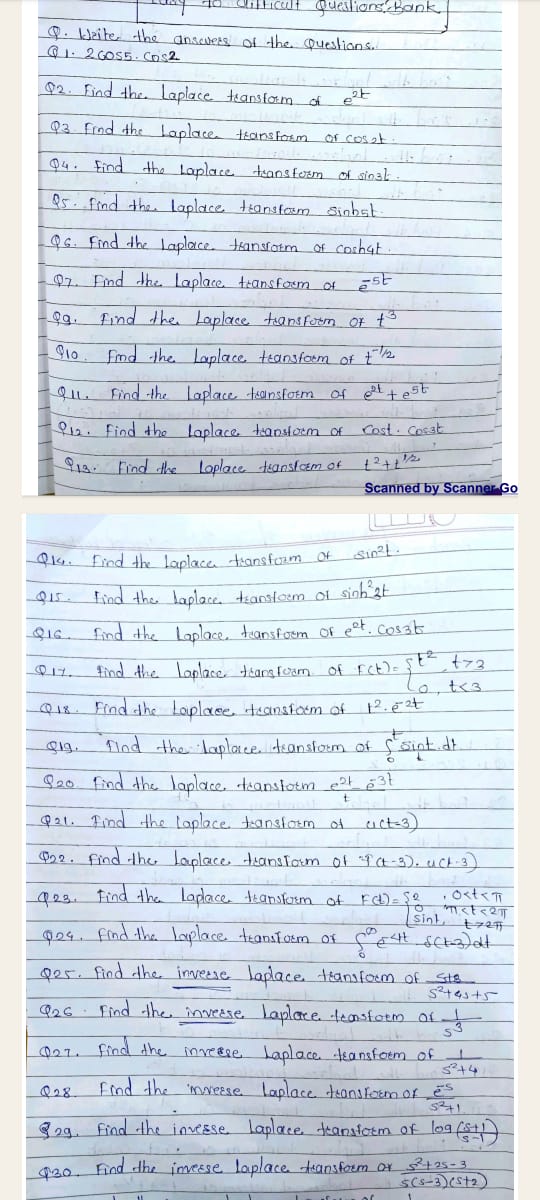 Difficult Questions Bank
Q. Write the answers of the Questions.
Q1. 2Cos5. Cos2
Q2. Find the Laplace transform of e^2t
Q3 Find the Laplace transform of cos2t.
Q4. Find the Laplace transform of sin3t.
Q5. Find the Laplace transform sinh2t.
Q6. Find the Laplace transform of cosh4t.
Q7. Find the Laplace transform of e^-5t
Q9. Find the Laplace transform of t^3
Q10. Find the Laplace transform of t^-1/2
Q11. Find the Laplace transform of e^2t + e^5t
Q12. Find the Laplace transform of Cost. Cos3t
Q13. Find the Laplace transform of t^2+t^1/2
Scanned by Scanner Go
Q14. Find the Laplace transform of sin^2t.
Q15. Find the Laplace transform of sinh^2 3t
Q16. Find the Laplace transform of e^2t. Cos3t
Q17. Find the Laplace transform of F(t)= { t^2, t>3
0, t<3
Q18. Find the Laplace transform of t^2.e^-2t
Q19. Find the Laplace transform of ∫_0^t sint/t.dt
Q20 Find the Laplace transform e^2t-e^-3t/t
Q21. Find the Laplace transform of u(t-3)
Q22. Find the Laplace transform of f(t-3). u(t-3)
Q23. Find the Laplace transform of F(t)= { 2, 0<t<π
0, π<t<2π
sint, t>2π
Q24. Find the Laplace transform of ∫_0^∞ e^-4t δ(t-3)dt
Q25. Find the inverse Laplace transform of s+8/s^2+4s+5
Q26. Find the inverse Laplace transform of 1/s^3
Q27. Find the inverse Laplace transform of 1/s^2+4
Q28 Find the inverse Laplace transform of e^-s/s^2+1
Q29. Find the inverse Laplace transform of log(s+1/s-1)
Q30. Find the inverse Laplace transform of s^2+2s-3/s(s-3)(s+2)